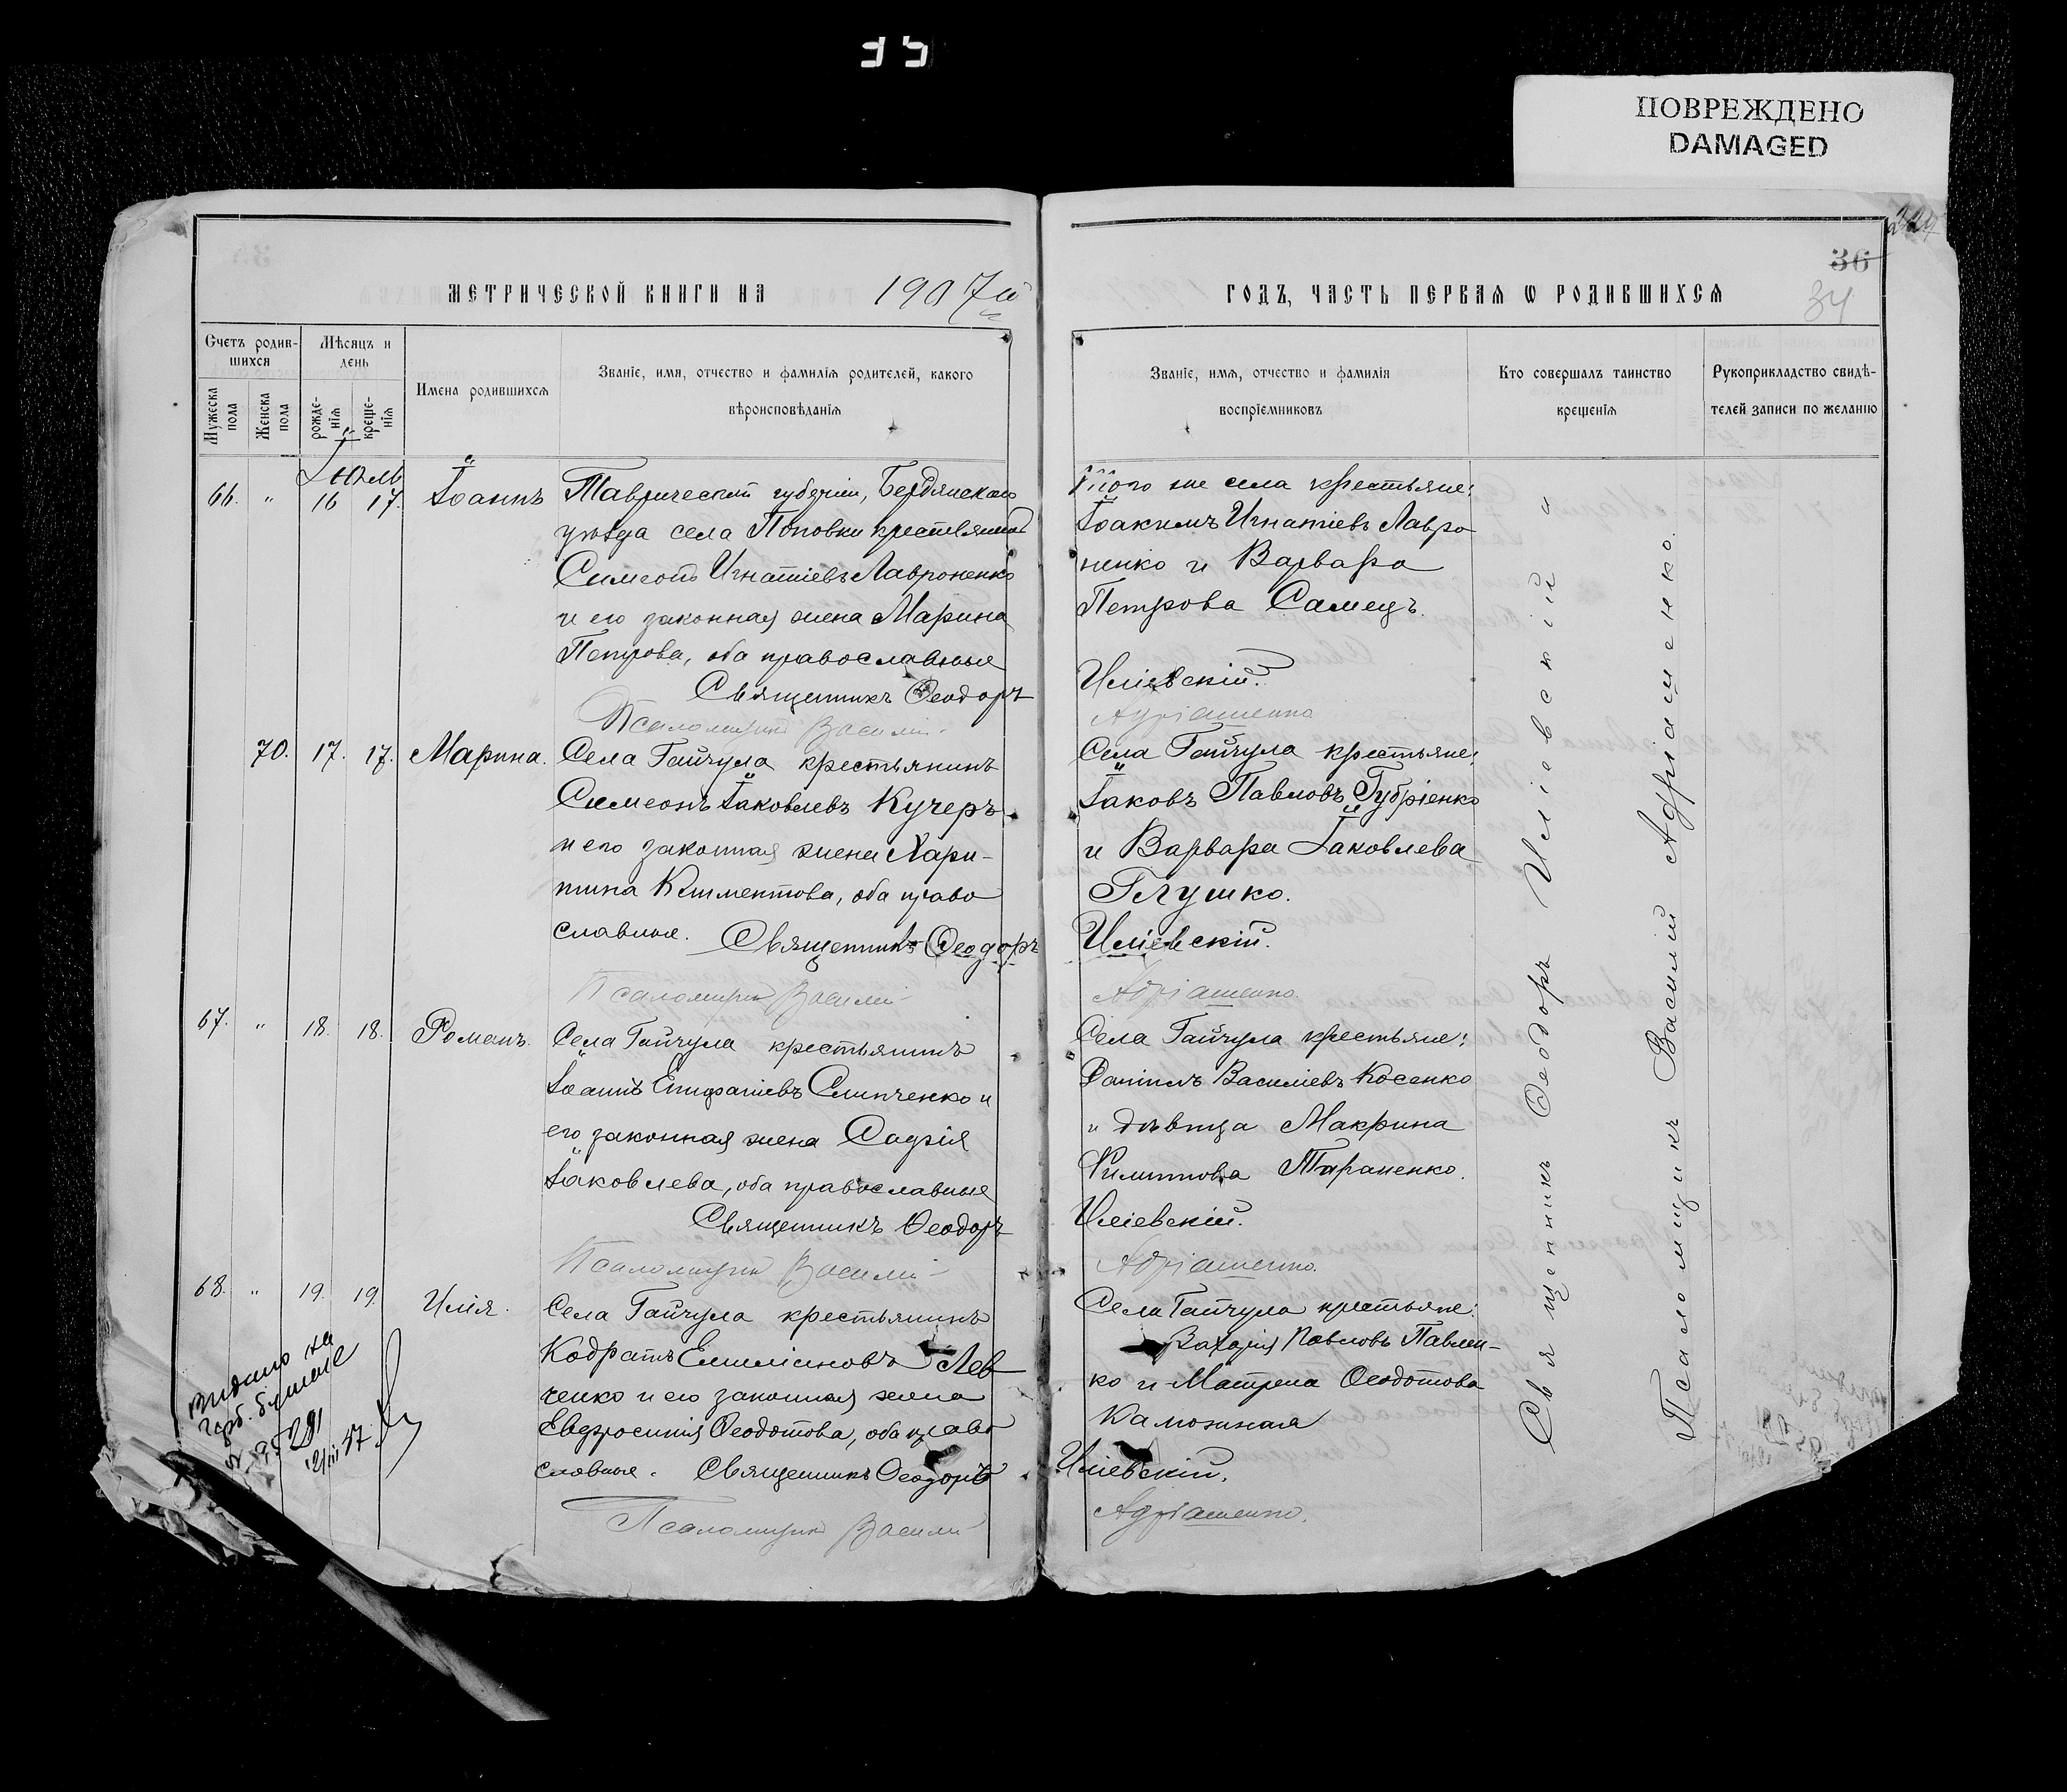 35
ПОВРЕЖДЕНО
DAMAGED
36
34
МЕТРИЧЕСКОЙ КНИГИ НА 1907й
ГОДЪ, ЧАСТЬ ПЕРВАЯ Ѡ РОДИВШИХСЯ
Счетъ родив-
шихся
Мѣсяцъ и
день
Мужеска
пола
Женска
пола
рожде-
нія
креще-
нія
Имена родившихся
Званіе, имя, отчество и фамилія родителей, какого
вѣроисповѣданія
Званіе, имя, отчество и фамилія
воспріемниковъ
Кто совершалъ таинство
крещенія
Рукоприкладство свидѣ-
телей записи по желанію
Іюль
66. " 16 17. Іоаннъ
Таврической губерніи, Бердянскаго
уѣзда села Поповки крестьянинъ
Симеонъ Игнатіевъ Лавроненко
и его законная жена Марина
Петрова, оба православные
Священникъ Ѳеодоръ
Псаломщикъ Василій
Того же села крестьяне:
Іоакимъ Игнатіевъ Лавро
ненко и Варвара
Петрова Самецъ.
Иліевскій.
Адріашенко
70. 17. 17. Марина.
Села Гайчула крестьянинъ
Симеонъ Іаковлевъ Кучеръ
и его законная жена Хари-
тина Климентова, оба право
славные. Священникъ Ѳеодоръ
Псаломщикъ Василій
Села Гайчула крестьяне:
Іаковъ Павловъ Губріенко
и Варвара Іаковлева
Глушко.
Иліевскій.
Адріашенко.
67. " 18. 18. Романъ.
Села Гайчула крестьянинъ
Іоаннъ Епифаніевъ Слипченко и
его законная жена Софія
Іаковлева, оба православные
Священникъ Ѳеодоръ
Псаломщикъ Василій
Села Гайчула крестьяне:
Даніилъ Василіевъ Косенко
и дѣвица Макрина
Филиппова Тараненко.
Иліевскій.
Адріашенко.
68. " 19. 19. Илія.
Села Гайчула крестьянинъ
Кодратъ Емиліановъ Лев
ченко и его законная жена
Евфросинія Ѳеодотова, оба право
славные. Священникъ Ѳеодоръ
Псаломщикъ Василій
Села Гайчула крестьяне:
Захарія Павловъ Павлен-
ко и Матрена Ѳеодотова
Иліевскій.
Адріашенко.
Священникъ Ѳеодоръ Иліевскій и
Псаломщикъ Василій Адріашенко.